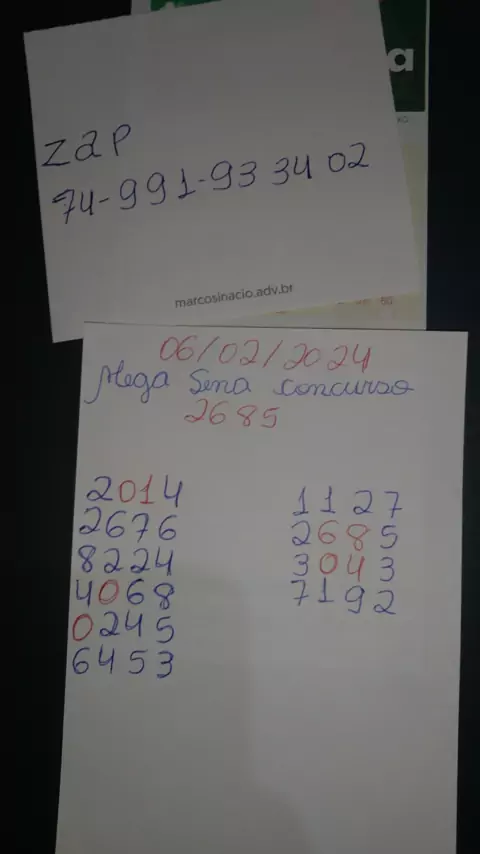 a
zap
74-991-93 34 02
marcosinacio.adv.br
80
06/02/2024
Mega Sena concurso
2685
2014
2676
8224
4068
0245
6453
1127
2685
3043
7192